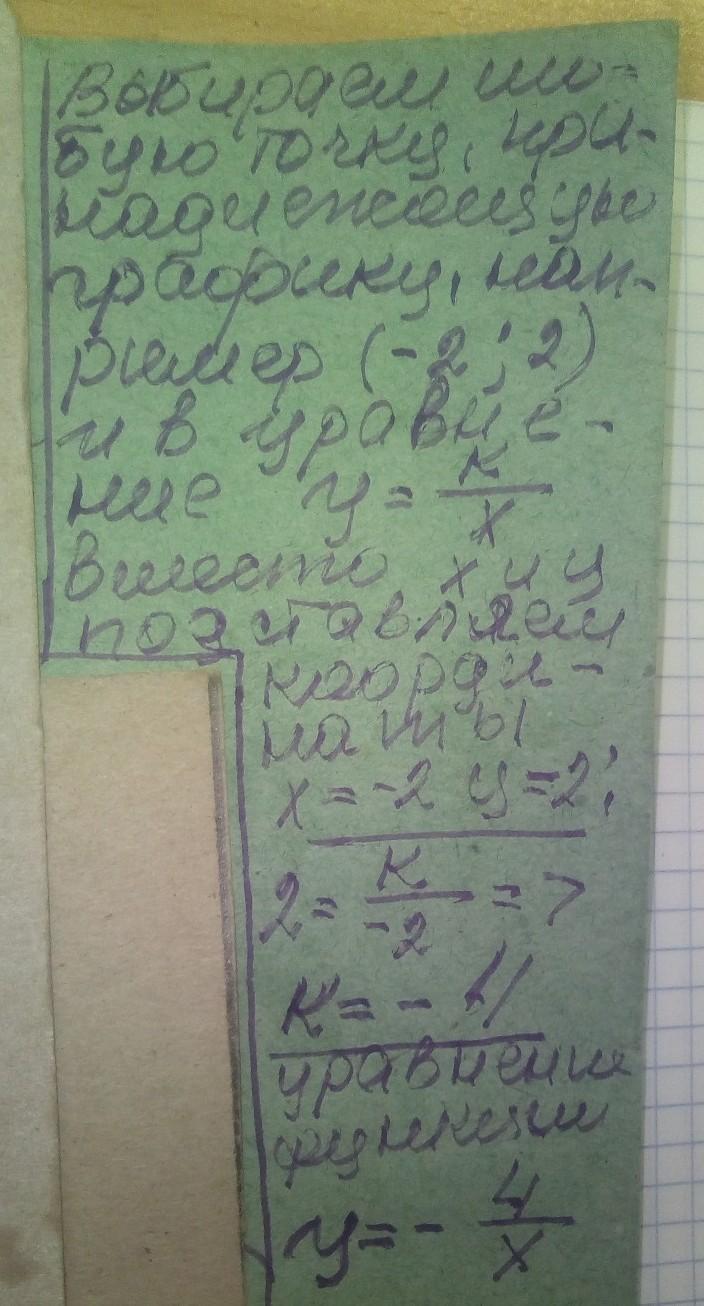 Выбираем лю=
бую точку, при-
надлежащую
графику, нап-
ример (-2; 2)
и в уравне-
ние y = к/x
вместо x и y
подставляем
коорди-
наты
x = -2 y = 2;
2 = к/-2 =>
к = - 4
уравнение
функции
y = - 4/x